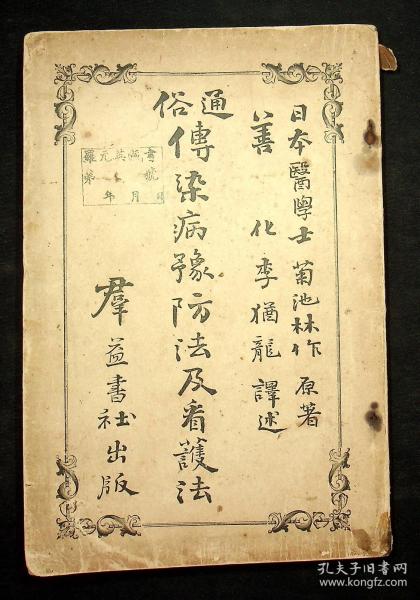 日本醫學士菊池林作 原著
善化李猶龍譯述
通俗
傳染病豫防法及看護法
羣益書社出版
年 月
孔夫子旧书网
www.kongfz.com